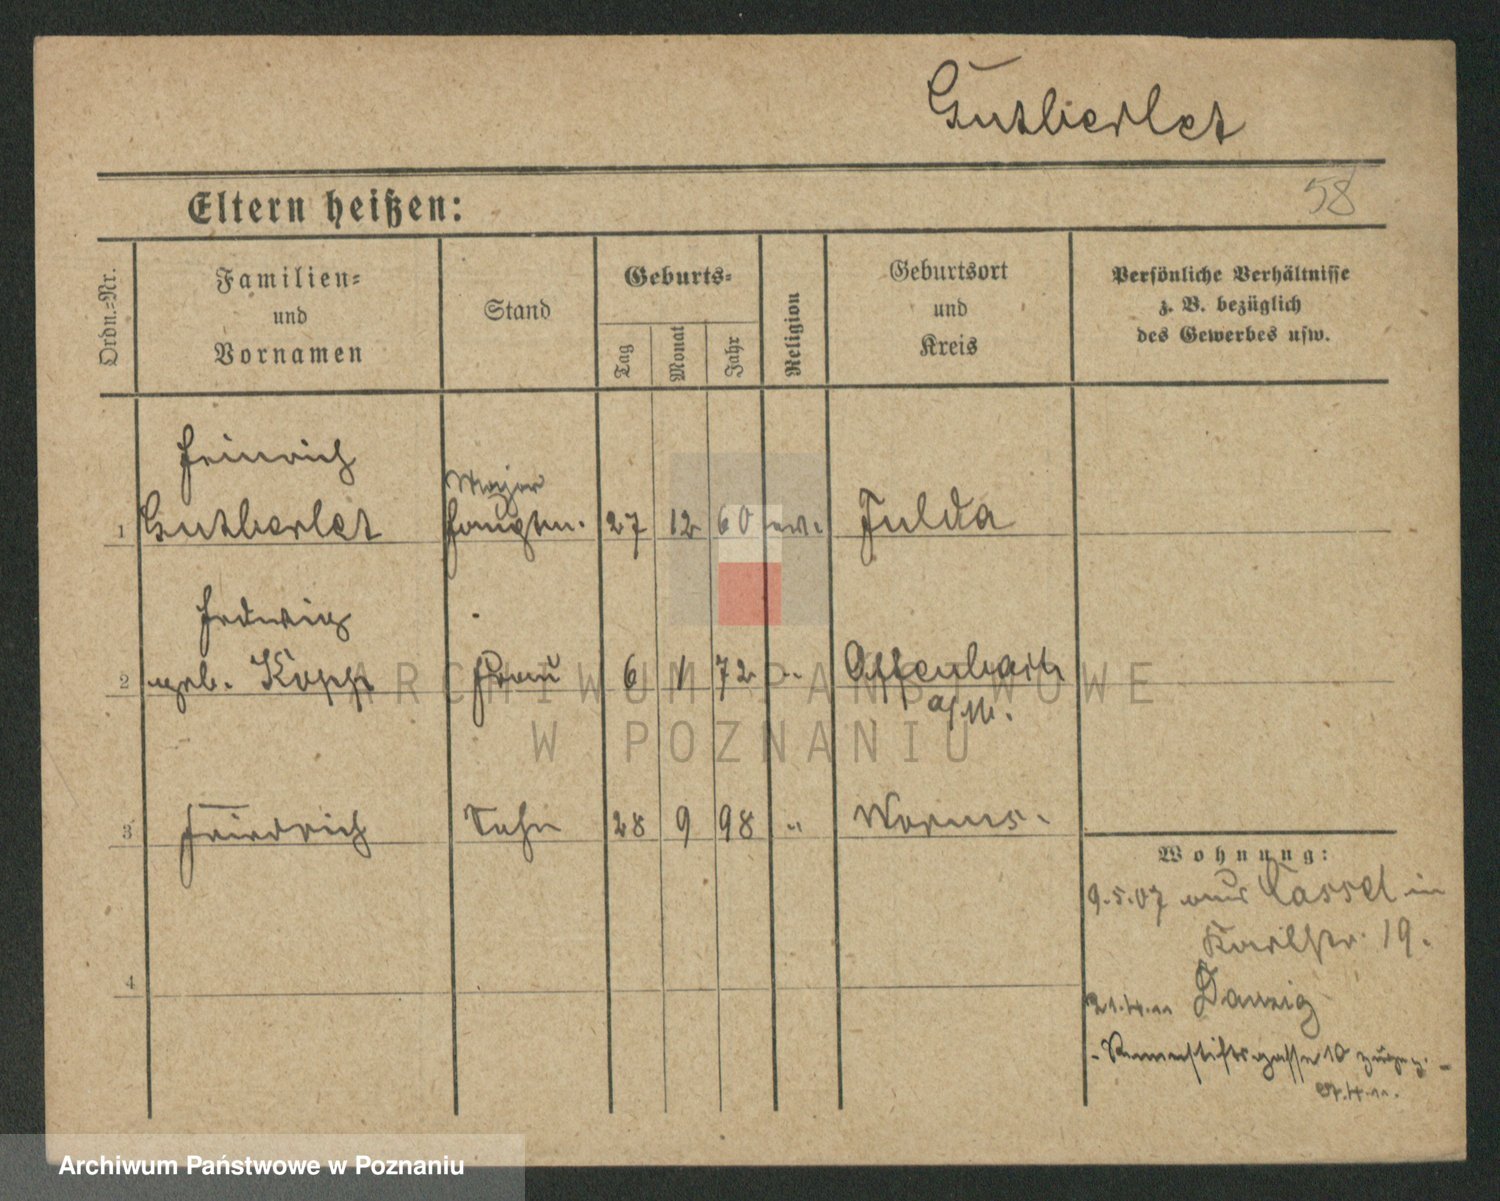 Gutberlet
58
Eltern heißen:
Ordn.-Nr.
Familien-
und
Vornamen
Stand
Geburts-
Tag
Monat
Jahr
Religion
Geburtsort
und
Kreis
Persönliche Verhältnisse
z. B. bezüglich
des Gewerbes usw.
Heinrich
Major
1 Gutberlet Hauptm. 27 12 60 ev. Fulda
Hedwig
2 geb. Kopp Frau 6 1 72 " Offenbach
a/M.
3 Friedrich Sohn 28 9 98 " Worms.
4
Wohnung:
9.5.07 aus Cassel in
Karlstr. 19.
21.4.11 Danzig
gasse 10
4.11.
ARCHIWUM PAŃSTWOWE
W POZNANIU
Archiwum Państwowe w Poznaniu